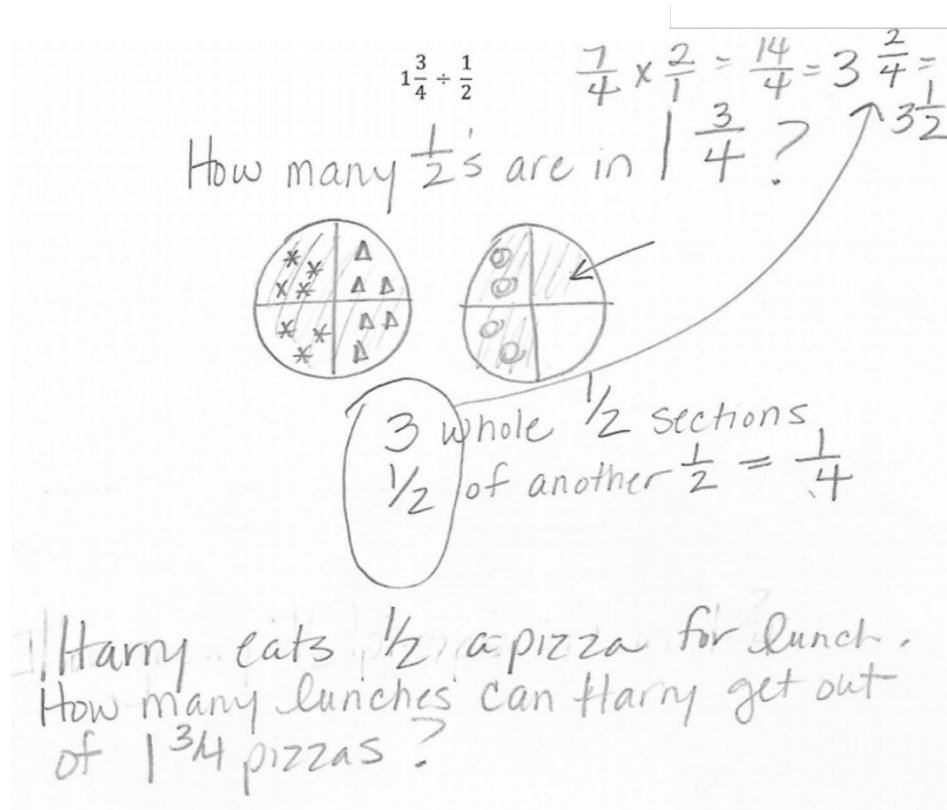 1 3/4 ÷ 1/2
7/4 x 2/1 = 14/4 = 3 2/4 =
3 1/2
How many 1/2's are in 1 3/4 ?
3 whole 1/2 sections
1/2 of another 1/2 = 1/4
Harry eats 1/2 a pizza for lunch.
How many lunches can Harry get out
of 1 3/4 pizzas ?